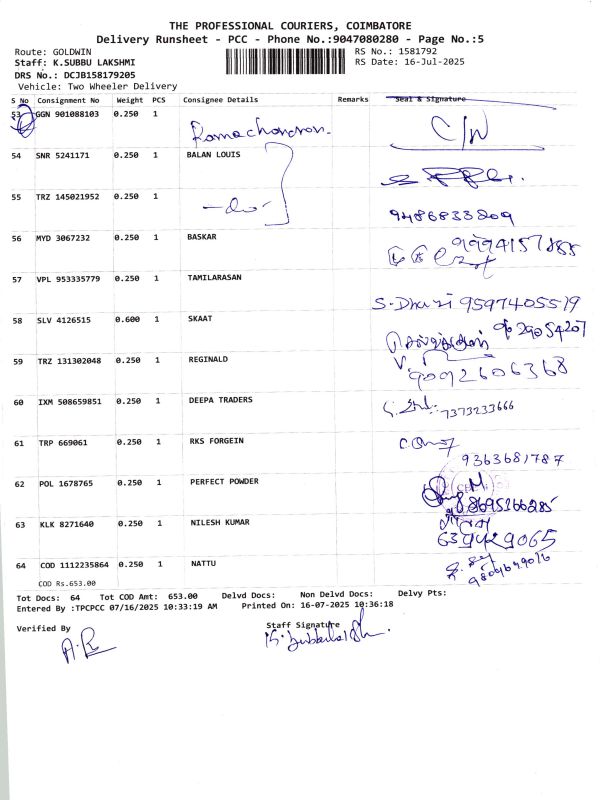 THE PROFESSIONAL COURIERS, COIMBATORE
Delivery Runsheet - PCC - Phone No.:9047080280 - Page No.:5
Route: GOLDWIN RS No.: 1581792
Staff: K.SUBBU LAKSHMI RS Date: 16-Jul-2025
DRS No.: DCJB158179205
Vehicle: Two Wheeler Delivery
S No Consignment No Weight PCS Consignee Details Remarks Seal & Signature
53 GGN 901088103 0.250 1 Ramachandran. C/W
54 SNR 5241171 0.250 1 BALAN LOUIS
55 TRZ 145021952 0.250 1 -do- 9486833809
56 MYD 3067232 0.250 1 BASKAR
57 VPL 953335779 0.250 1 TAMILARASAN
S-Dhari 9597405519
58 SLV 4126515 0.600 1 SKAAT
59 TRZ 131302048 0.250 1 REGINALD 9092606368
60 IXM 508659851 0.250 1 DEEPA TRADERS 7373233666
61 TRP 669061 0.250 1 RKS FORGEIN
9363681787
62 POL 1678765 0.250 1 PERFECT POWDER
63 KLK 8271640 0.250 1 NILESH KUMAR
64 COD 1112235864 0.250 1 NATTU
COD Rs.653.00
Tot Docs: 64 Tot COD Amt: 653.00 Delvd Docs: Non Delvd Docs: Delvy Pts:
Entered By :TPCPCC 07/16/2025 10:33:19 AM Printed On: 16-07-2025 10:36:18
Verified By Staff Signature
A.R